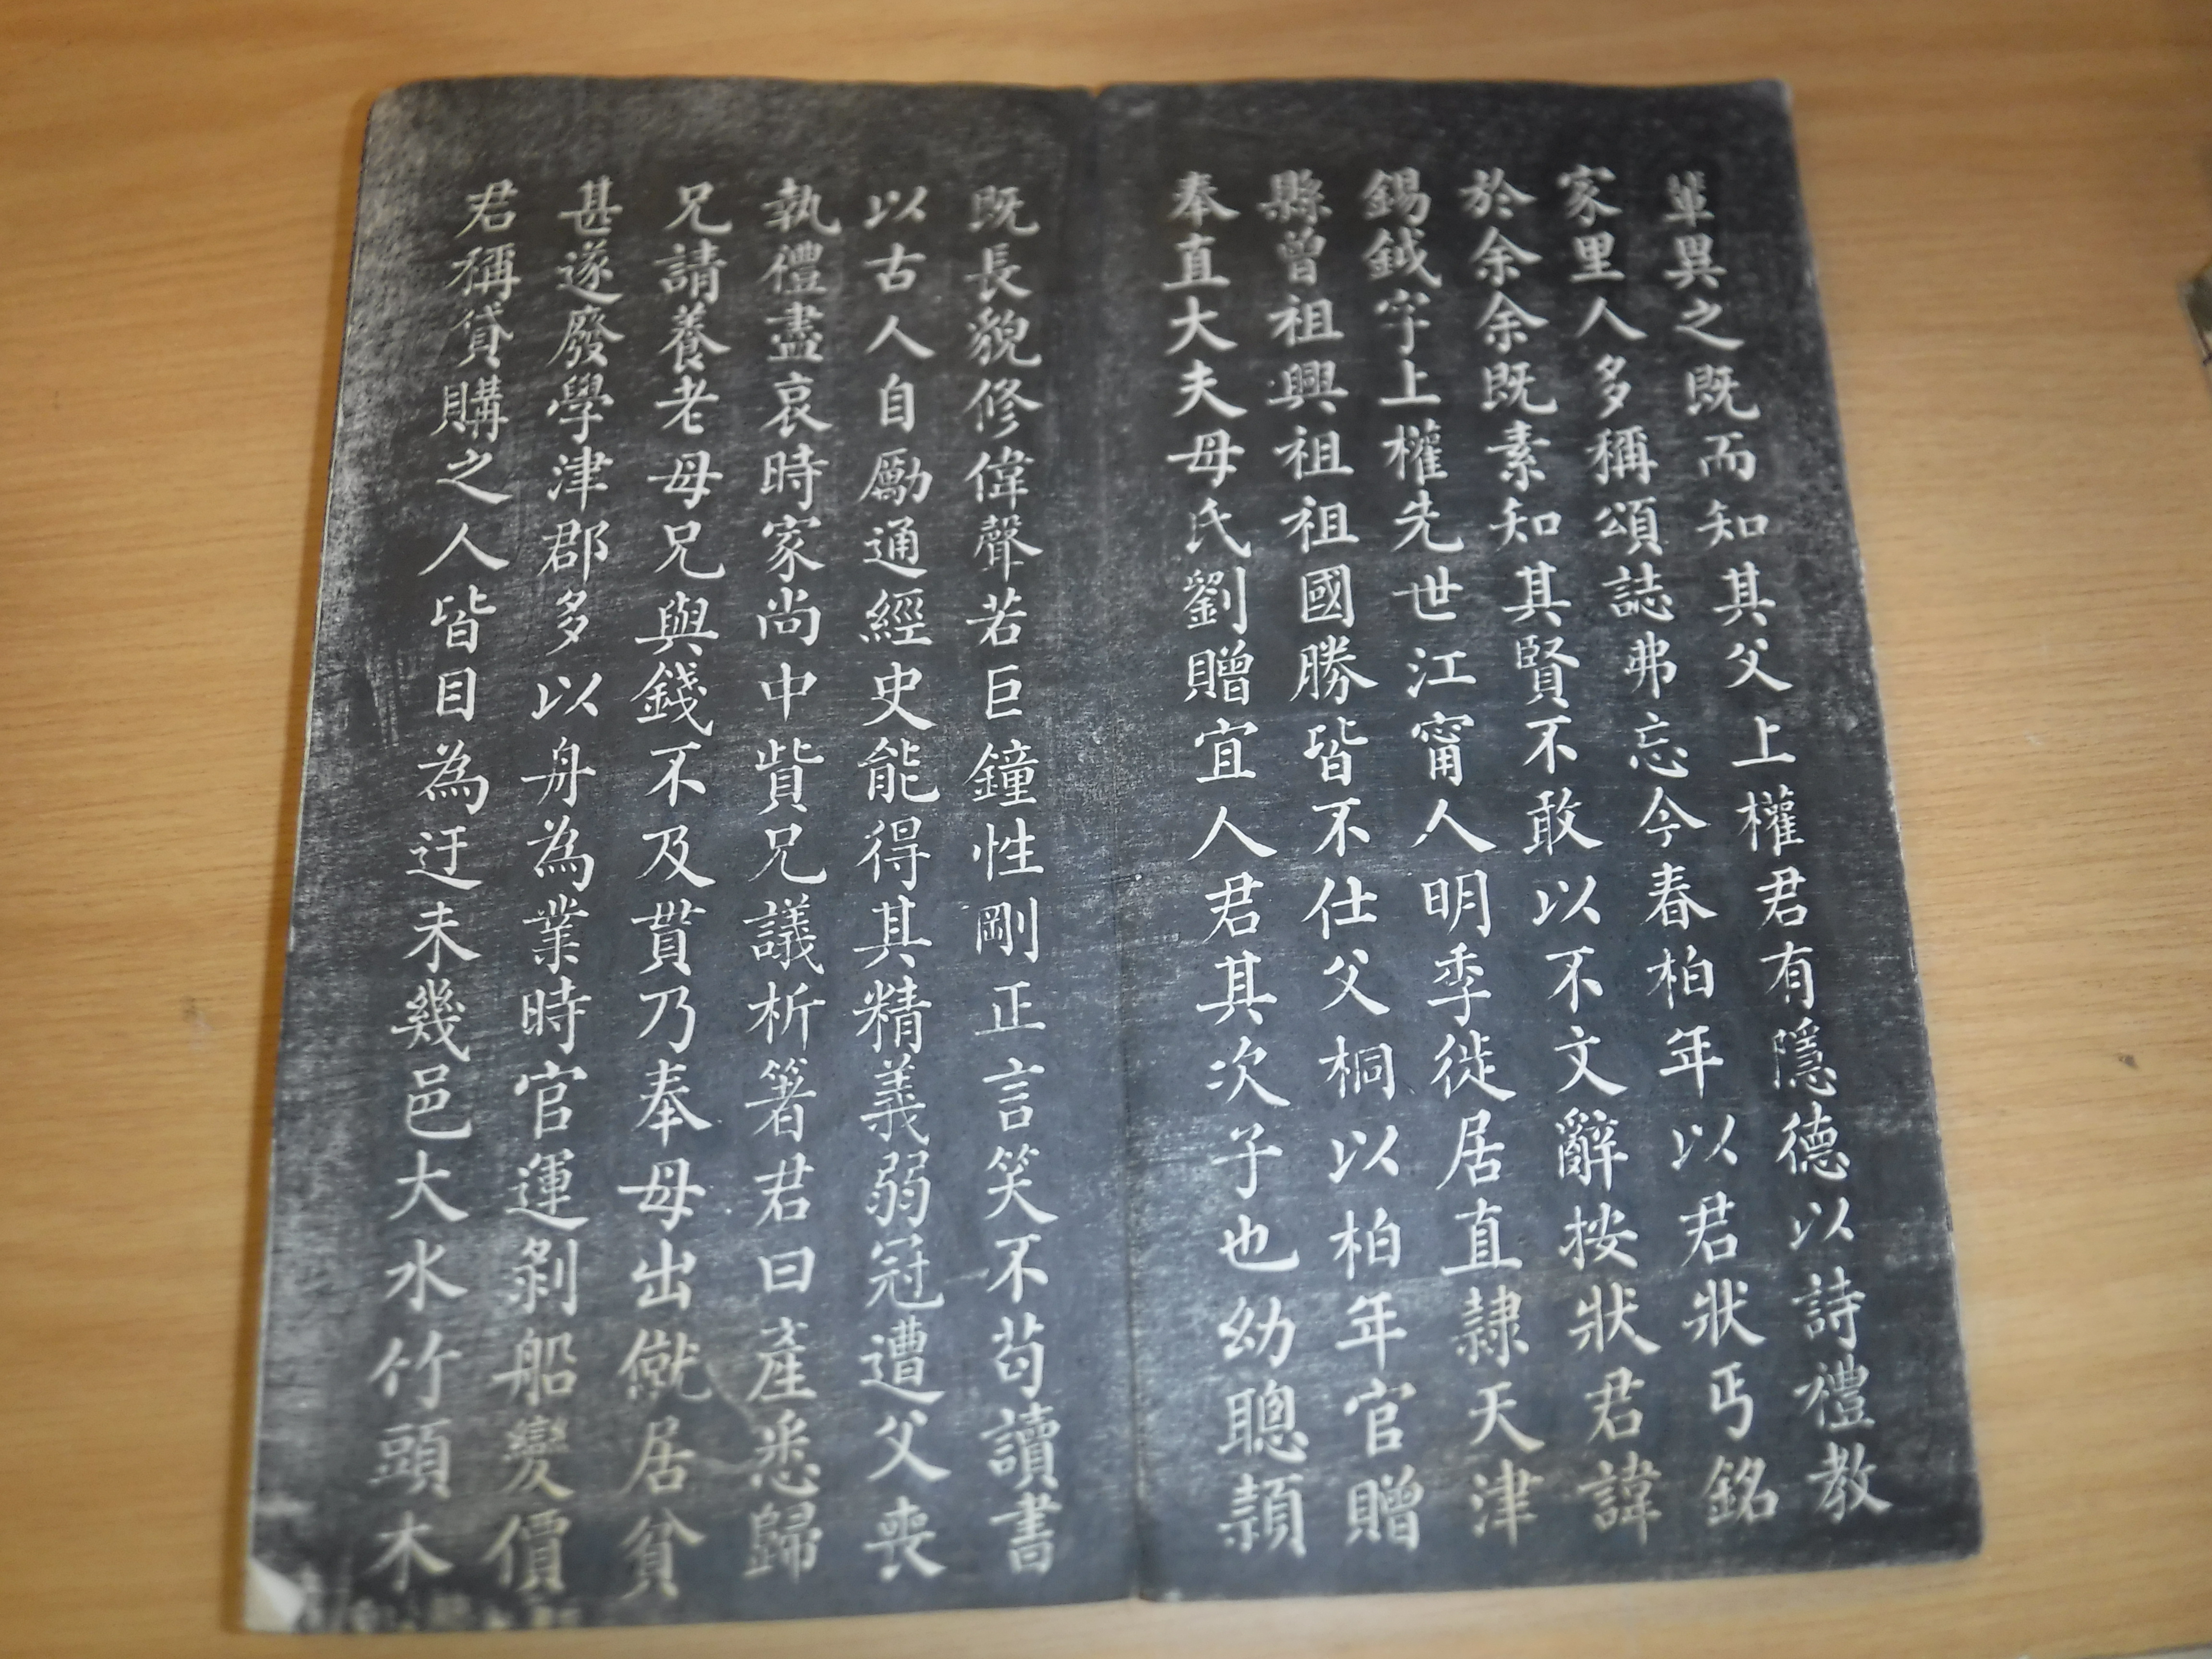 輩異之既而知其父上權君有隱德以詩禮教
家里人多稱頌誌弗忘今春柏年以君狀丐銘
於余余既素知其賢不敢以不文辭按狀君諱
錫鉞字上權先世江甯人明季徙居直隸天津
縣曾祖興祖祖國勝皆不仕父桐以柏年官贈
奉直大夫母氏劉贈宜人君其次子也幼聰穎
既長貌修偉聲若巨鐘性剛正言笑不苟讀書
以古人自勵通經史能得其精義弱冠遭父喪
執禮盡哀時家尚中貲兄議析箸君曰產悉歸
兄請養老母兄與錢不及貫乃奉母出僦居貧
甚遂廢學津郡多以舟為業時官運剝船變價
君稱貸購之人皆目為迂未幾邑大水竹頭木